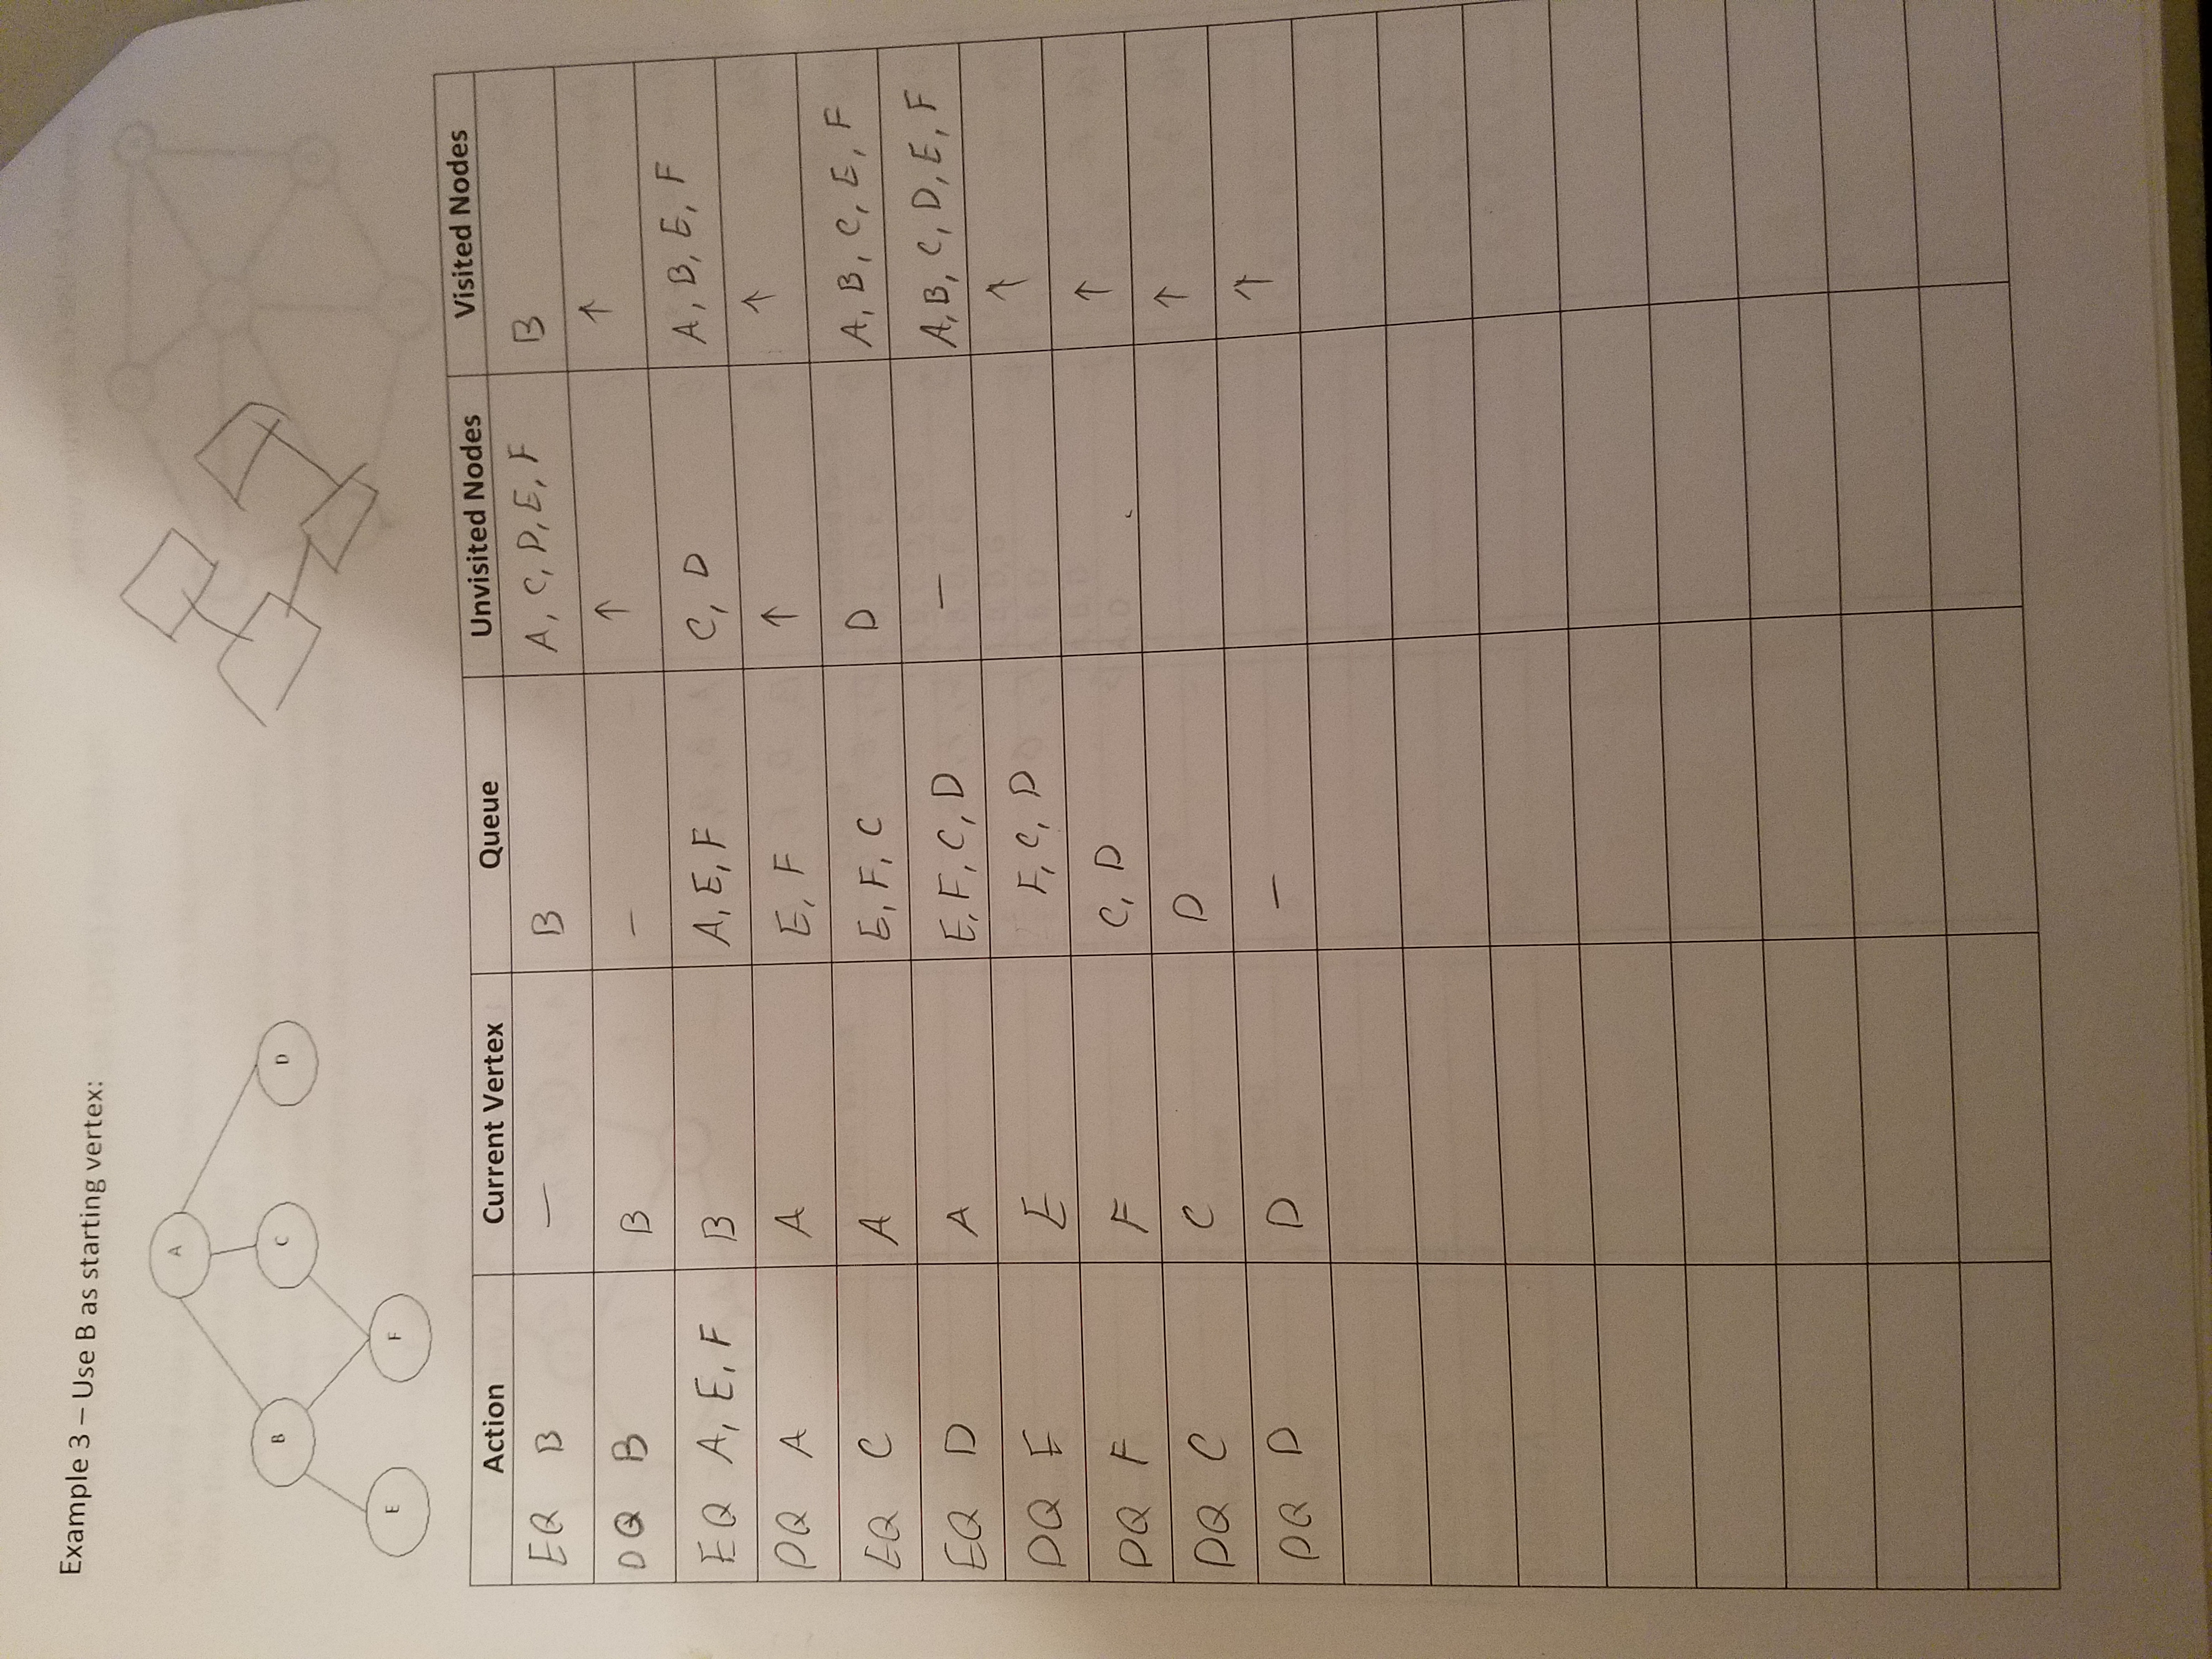 Example 3 – Use B as starting vertex:
A
B C D
E F
Action Current Vertex Queue Unvisited Nodes Visited Nodes
EQ B — B A, C, D, E, F B
DQ B B — ↑ ↑
EQ A, E, F B A, E, F C, D A, B, E, F
DQ A A E, F ↑ ↑
EQ C A E, F, C D A, B, C, E, F
EQ D A E, F, C, D — A, B, C, D, E, F
DQ E E F, C, D ↑
DQ F F C, D ↑
DQ C C D ↑
DQ D D — ↑